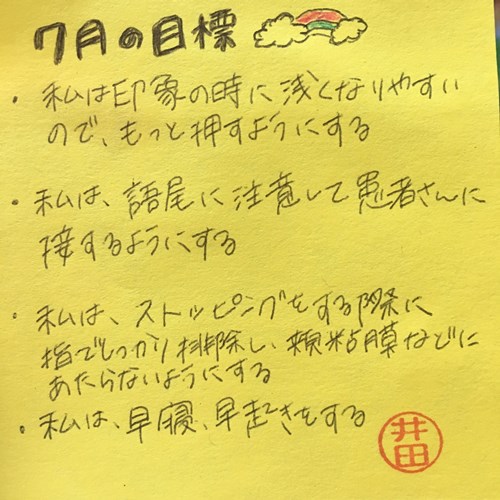 7月の目標
・私は印象の時に浅くなりやすい
ので、もっと押すようにする
・私は、語尾に注意して患者さんに
接するようにする
・私は、ストッピングをする際に
指でしっかり排除し、頬粘膜などに
あたらないようにする
・私は、早寝、早起きをする
井田